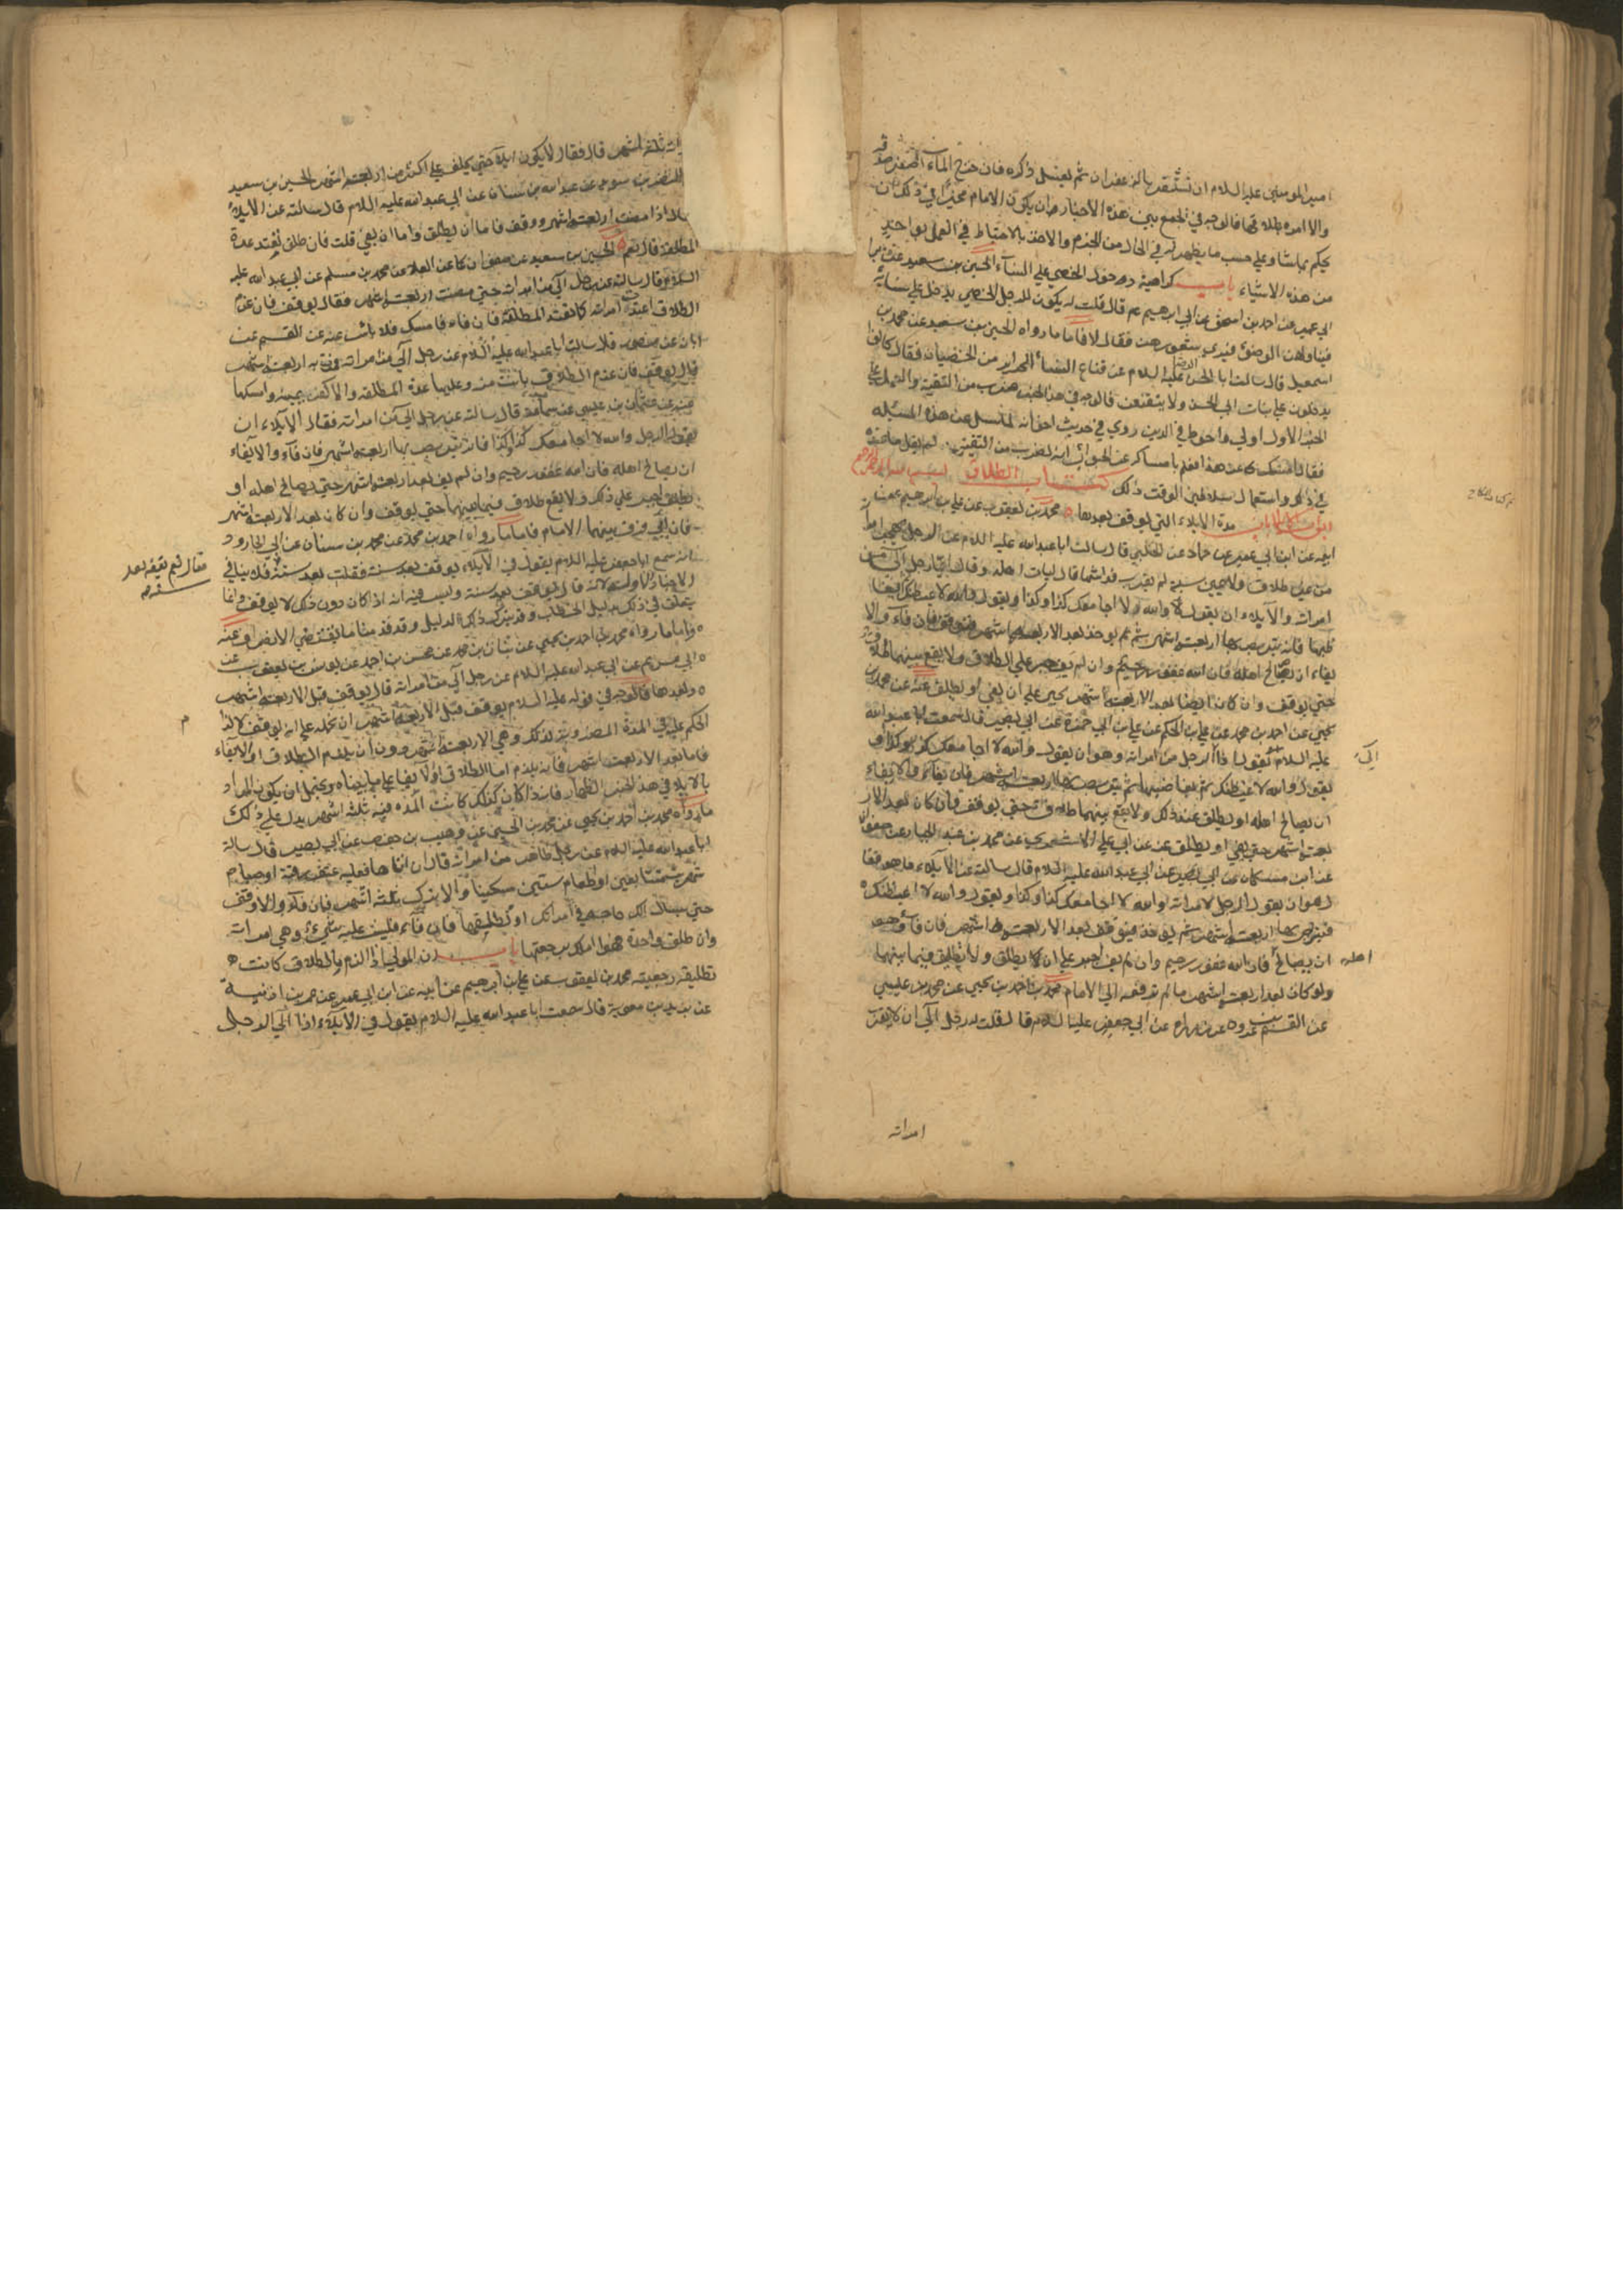 امير المومنين عليه السلام ان تستثفر بالزعفران ثم يغسل ذكره فان خرج الماء اصفر صدقه
والا امره بطلاقها فالوجه في الجمع بين هذه الاخبار ان يكون الامام مخيرا في ذلك ان
يحكم بما شاء وعلى حسب ما يظهر له في الحال من الحزم والاخذ بالاحتياط في العمل بواحد
من هذه الاشياء باب كراهية دخول الخصي على النساء الحسين بن سعيد عن
ابي عمير عن احمد بن اسحق عن ابي ابراهيم عم قال قلت له يكون للرجل الخصي يدخل على نسائه
فيناولهن الوضوء فيرى شعورهن فقال لا فاما ما رواه الحسين بن سعيد عن محمد بن
اسمعيل قال سالت ابا الحسن الرضا عليه السلام عن قناع النساء الحراير من الخصيان فقال كانوا
يدخلون على بنات ابي الحسن ولا يتقنعن فالوجه في هذا الخبر ضرب من التقية والعمل على
الخبر الاول اولى واحوط في الدين روي في حديث اخر انه لما سئل عن هذه المسئلة
فقال امسك عن هذا فعلم بامساكه عن الجواب انه لضرب من التقية لم يقل ما عنده
في ذلك واستعمال سلاطين الوقت ذلك كتاب الطلاق بسم الله الرحمن الرحيم
باب مدة الايلاء التي يوقف بعدها محمد بن يعقوب عن علي بن ابرهيم عن
ابيه عن ابن ابي عمير عن حماد عن الحلبي قال سالت ابا عبد الله عليه السلام عن الرجل يهجر امراته
من غير طلاق ولا يمين سنة لم يقرب فراشها قال ليات اهله وقال ايما رجل آلى من
امراته والايلاء ان يقول لا والله لا اجامعك كذا وكذا ويقول والله لاغيظنك ثم يغا
ظبها فانه يتربص بها اربعة اشهر ثم يوخذ بعد الاربعة اشهر فيوقف فان فاء والا
يفاء ان يصالح اهله فان الله غفور رحيم وان لم يف جبر على الطلاق ولا يقع بينهما طلاق
حتى يوقف وان كان ايضا بعد الاربعة اشهر يجبر على ان يفي او يطلق عنه عن محمد بن
يحيى عن احمد بن محمد عن علي بن الحكم عن علي بن ابي حمزة عن ابي بصير قال سمعت ابا عبد الله
عليه السلام يقول اذا آلى الرجل من امراته وهو ان يقول والله لا اجامعك كذا وكذا و
يقول والله لاغيظنك ثم يغاضبها ثم يتربص بها اربعة اشهر فان فاء والايفاء
ان يصالح اهله او يطلق عند ذلك ولا يقع بينهما طلاق حتى يوقف وان كان بعد الار
بعة اشهر حتى يفي او يطلق عنه عن ابي علي الاشعري عن محمد بن عبد الجبار عن صفوان
عن ابن مسكان عن ابي بصير عن ابي عبد الله عليه السلام قال سالته عن الايلاء ما هو فقا
ل هو ان يقول الرجل لامراته والله لا اجامعك كذا وكذا ويقول والله لاغيظنك
فيتربص بها اربعة اشهر ثم يوخذ فيوقف بعد الاربعة اشهر فان فاء وهو
ان يصالح اهله فان الله غفور رحيم وان لم يف اجبر على ان يطلق ولا يطلق فيما بينهما
ولو كان بعد اربعة اشهر ما لم ترفعه الى الامام محمد بن احمد بن يحيى عن محمد بن عيسى
عن القسم بن عروة عن زرارة عن ابي جعفر عليه السلام قال قلت له رجل آلى ان لا يقرب
امراته
امراته ثلثة اشهر قال فقال لا يكون ايلاء حتى يحلف على اكثر من اربعة اشهر الحسين بن سعيد
النضر بن سويد عن عبد الله بن سنان عن ابي عبد الله عليه السلام قال سالته عن الايلاء
فقال اذا مضت اربعة اشهر ووقف فاما ان يطلق واما ان يفي قلت فان طلق تعتد عدة
المطلقة قال نعم الحسين بن سعيد عن صفوان عن العلا عن محمد بن مسلم عن ابي عبد الله عليه
السلام قال سالته عن رجل آلى من امراته حتى مضت اربعة اشهر فقال يوقف فان عزم
الطلاق اعتدت امراته كما تعتد المطلقة فان فاء فامسك فلا باس عنه عن القسم عن
ابان عن منصور قال سالت ابا عبد الله عليه السلام عن رجل آلى من امراته فمرت به اربعة اشهر
قال يوقف فان عزم الطلاق بانت منه وعليها عدة المطلقة والا كفر يمينه وامسكها
عنه عن عثمن بن عيسى عن سماعة قال سالته عن رجل آلى من امراته فقال الايلاء ان
يقول الرجل والله لا اجامعك كذا وكذا فانه يتربص بها اربعة اشهر فان فاء والايفاء
ان يصالح اهله فان الله غفور رحيم وان لم يف بعد اربعة اشهر حتى يصالح اهله او
يطلق اجبر على ذلك ولا يقع طلاق فيما بينهما حتى يوقف وان كان بعد الاربعة اشهر
فان ابى فرق بينهما الامام فاما ما رواه احمد بن محمد عن محمد بن سنان عن ابي الجارود
انه سمع ابا جعفر عليه السلام يقول في الايلاء يوقف بعد سنة فقلت بعد سنة فلا ينافي
الاخبار الاولة لانه قال يوقف بعد سنة وليس فيه انه اذا كان دون ذلك لا يوقف وانما
يتعلق في ذلك بدليل الخطاب وقد يترك ذلك لدليل وقد قدمنا ما يقتضي الانصراف عنه
فاما ما رواه محمد بن احمد بن يحيى عن بنان بن محمد عن محسن بن احمد عن يونس بن يعقوب عن
ابي مريم عن ابي عبد الله عليه السلام عن رجل آلى من امراته قال يوقف قبل الاربعة اشهر
وبعدها فالوجه في قوله عليه السلام يوقف قبل الاربعة اشهر ان نحمله على انه يوقف لالزا
الحكم عليه في المدة المضروبة لذلك وهي الاربعة اشهر دون ان يلزم الطلاق او الايفاء
فاما بعد الاربعة اشهر فانه يلزم اما الطلاق او الايفاء على ما بيناه ويحتمل ان يكون المراد
بالايلاء في هذا الخبر الظهار فانه اذا كان كذلك كانت المدة فيه ثلثة اشهر يدل على ذلك
ما رواه محمد بن احمد بن يحيى عن محمد بن الحسين عن وهيب بن حفص عن ابي بصير قال سالت
ابا عبد الله عليه السلام عن رجل ظاهر من امراته قال ان اتاها فعليه عتق رقبة او صيام
شهرين متتابعين او اطعام ستين مسكينا والا يترك ثلثة اشهر فان فاء والا اوقف
حتى يسال الك حاجة في امراتك او تطلقها فان فاء فليس عليه شيء وهي امراته
وان طلق واحدة فهو املك برجعتها باب ان المولي اذا الزم بالطلاق كانت
تطليقة رجعية محمد بن يعقوب عن علي بن ابرهيم عن ابيه عن ابن ابي عمير عن عمر بن اذينة
عن بريد بن معوية قال سمعت ابا عبد الله عليه السلام يقول في الايلاء اذا آلى الرجل